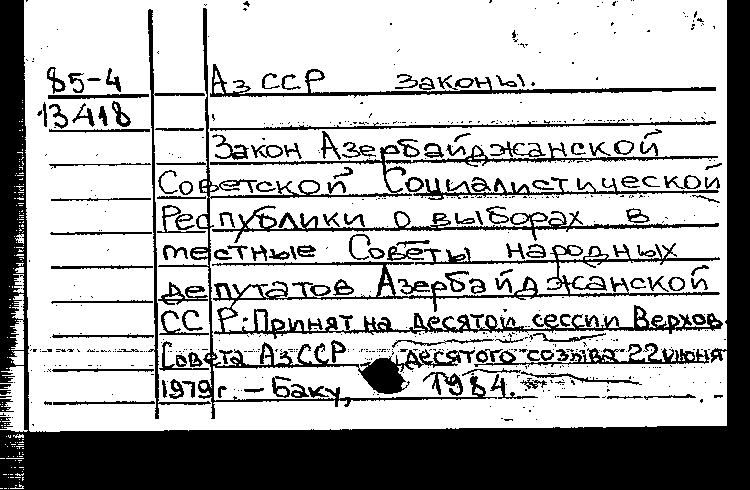 85-4 АзССР законы.
13418
Закон Азербайджанской
Советской Социалистической
Республики о выборах в
местные Советы народных
депутатов Азербайджанской
ССР: Принят на десятой сессии Верхов.
Совета АзССР десятого созыва 22 июня
1979 г. – Баку, 1984.